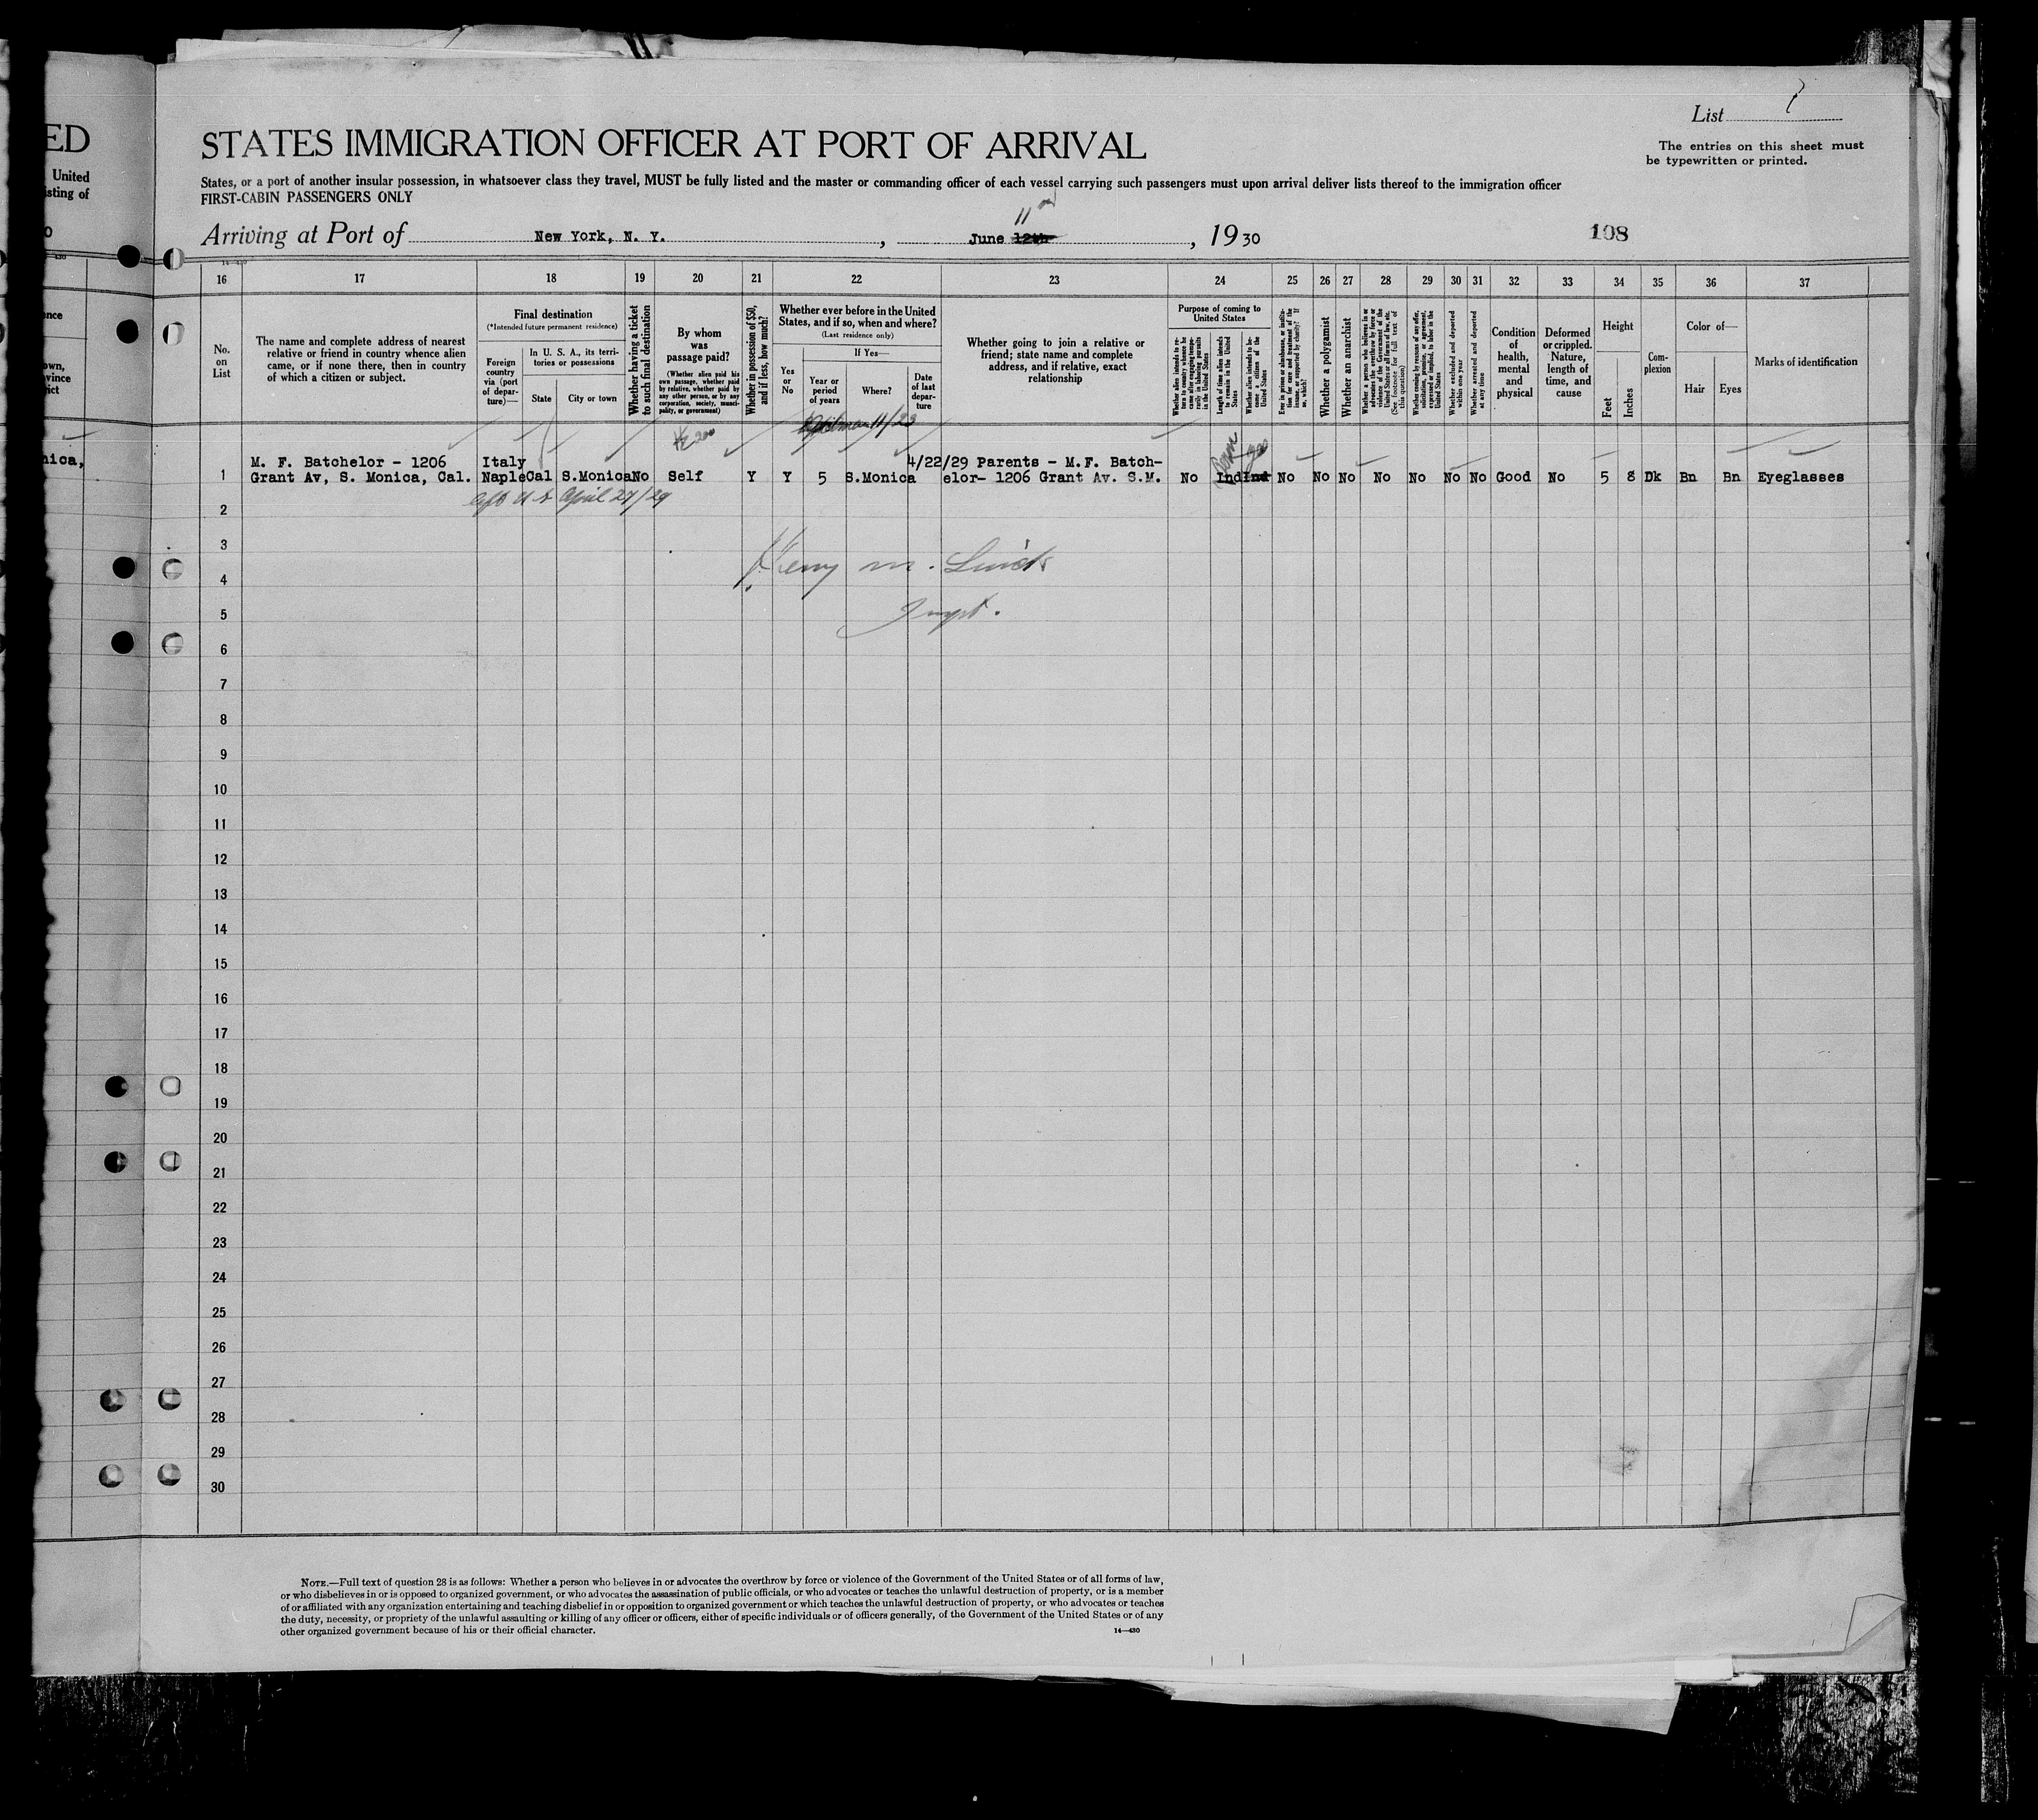 ED
United
isting of
List
STATES IMMIGRATION OFFICER AT PORT OF ARRIVAL
The entries on this sheet must
be typewritten or printed.
States, or a port of another insular possession, in whatsoever class they travel, MUST be fully listed and the master or commanding officer of each vessel carrying such passengers must upon arrival deliver lists thereof to the immigration officer
FIRST-CABIN PASSENGERS ONLY
Arriving at Port of New York, N. Y., June 12th 11, 1930
108
16 17 18 19 20 21 22 23 24 25 26 27 28 29 30 31 32 33 34 35 36 37
No.
on
List
The name and complete address of nearest
relative or friend in country whence alien
came, or if none there, then in country
of which a citizen or subject.
Final destination
(*Intended future permanent residence)
Foreign
country
via (port
of depar-
ture)—
In U. S. A., its terri-
tories or possessions
State
City or town
Whether having a ticket
to such final destination
By whom
was
passage paid?
(Whether alien paid his
own passage, whether paid
by relative, whether paid by
any other person, or by any
corporation, society, munici-
pality, or government)
Whether in possession of $50,
and if less, how much?
Whether ever before in the United
States, and if so, when and where?
(Last residence only)
Yes
or
No
If Yes—
Year or
period
of years
Where?
Date
of last
depar-
ture
Whether going to join a relative or
friend; state name and complete
address, and if relative, exact
relationship
Purpose of coming to
United States
Whether alien intends to re-
turn to country whence he
came after engaging tempo-
rarily in laboring pursuits
in the United States
Length of time alien intends
to remain in the United
States
Whether alien intends to be-
come a citizen of the
United States
Ever in prison or almshouse, or institu-
tion for care and treatment of the
insane, or supported by charity? If
so, which?
Whether a polygamist
Whether an anarchist
Whether a person who believes in or
advocates the overthrow by force or
violence of the Government of the
United States or all forms of law, etc.
(See footnote for full text of
this question)
Whether coming by reason of any offer,
solicitation, promise, or agreement,
expressed or implied, to labor in the
United States
Whether excluded and deported
within one year
Whether arrested and deported
at any time
Condition
of
health,
mental
and
physical
Deformed
or crippled.
Nature,
length of
time, and
cause
Height
Feet
Inches
Com-
plexion
Color of—
Hair
Eyes
Marks of identification
11/23
nica,
M. F. Batchelor - 1206 Italy 4/22/29 Parents - M.F. Batch-
1 Grant Av, S. Monica, Cal. Naple Cal S.Monica No Self Y Y 5 S.Monica elor- 1206 Grant Av. S.M. No Ind Ind No No No No No No No Good No 5 8 Dk Bn Bn Eyeglasses
April 27/29
2
3
Henry M.
4
Inspt.
5
6
7
8
9
10
11
12
13
14
15
16
17
18
19
20
21
22
23
24
25
26
27
28
29
30
NOTE.—Full text of question 28 is as follows: Whether a person who believes in or advocates the overthrow by force or violence of the Government of the United States or of all forms of law,
or who disbelieves in or is opposed to organized government, or who advocates the assassination of public officials, or who advocates or teaches the unlawful destruction of property, or is a member
of or affiliated with any organization entertaining and teaching disbelief in or opposition to organized government or which teaches the unlawful destruction of property, or who advocates or teaches
the duty, necessity, or propriety of the unlawful assaulting or killing of any officer or officers, either of specific individuals or of officers generally, of the Government of the United States or of any
other organized government because of his or their official character.
14—430